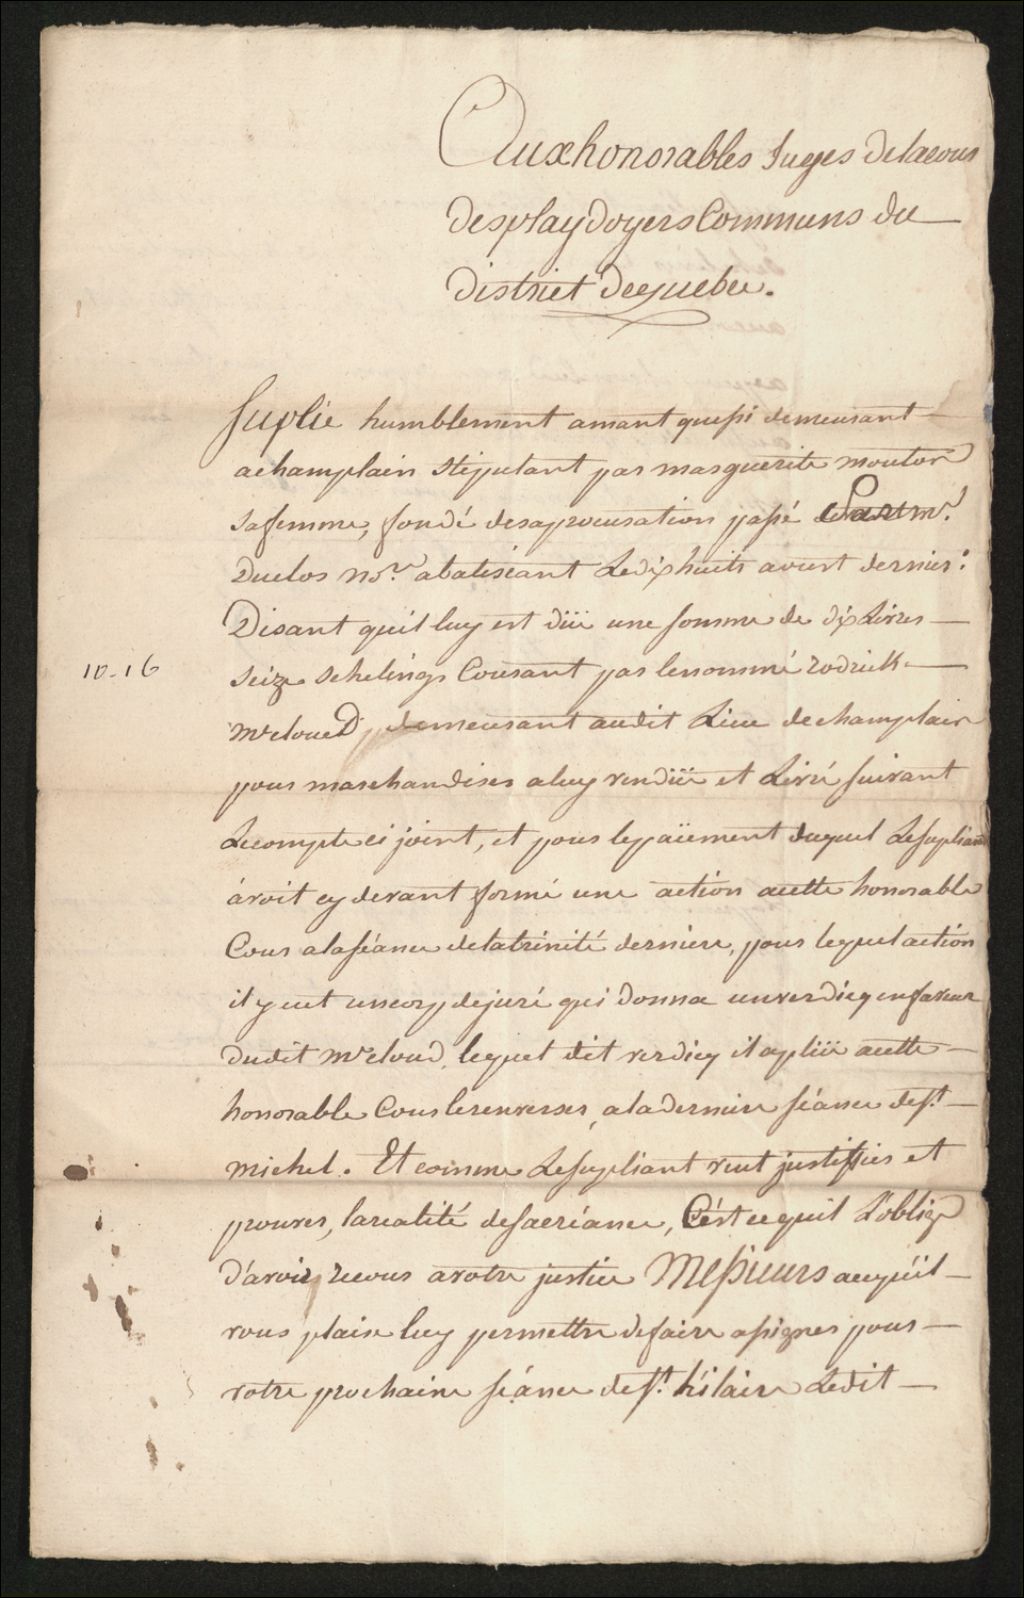 Aux honorables Juges de la cour
des playdoyers Communs du
District de quebec.
Suplie humblement amant quessi demeurant
a champlain stipulant par marguerite mouton
sa femme, fondé de sa procuration passé Par m.r
Duclos no.re a batiscant Le dix huits avust dernier:
Disant quil luy est düe une somme de dix Livres
10-16
seize schelings Courant par le nommé rodrick
McloueD, demeurant audit Lieu de champlain
pour marchandises a luy vendüe et Livré suivant
Le compte ci joint, et pour le païement duquel Le supliant
àvoit cy devant formé une action a cette honorable
Cour a la séance de la trinité derniere, pour lequel action
il y eut un corp de juré qui donna un verdicq en faveur
Dudit McclouD, lequel dit verdicq il a pliü a cette
honorable Cour le renverser, a la derniere séance de s.t
michel. Et comme Le supliant veut justiffier et
prouver, la realité de sa créance, C'est ce quil L'oblige
D'avoir recour a votre justice Messieurs a ce qu'il
vous plaise luy permettre de faire assigner pour
votre prochaine séance de s.t hilaire Ledit